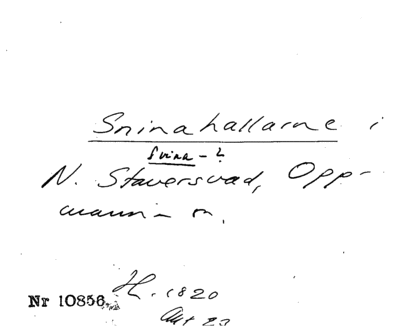 Sninahallarne i
Svina - ?
N. Staversvad, Opp-
manna sn.
Nr 10856.
H. 1820
Akt 23